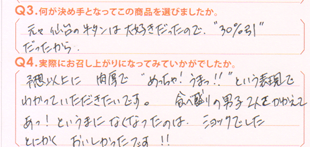 Q3.何が決め手となってこの商品を選びましたか。
元々仙台の牛タンは大好きだったので、"30%引"
だったから。
Q4.実際にお召し上がりになってみていかがでしたか。
予想以上に 肉厚で "めっちゃ!うまっ!!"という表現で
わかっていただきたいです。 食べ盛りの男子2人をかかえて
あっ!というまに なくなったのは、ショックでした
とにかく おいしかったです!!